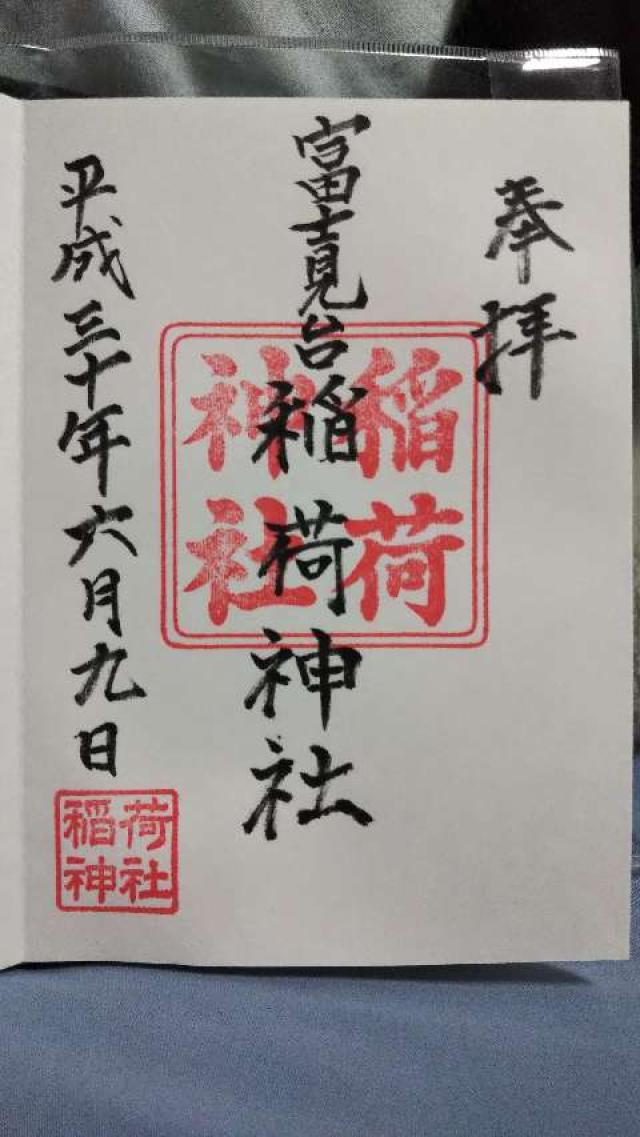 奉拝
富士見台稲荷神社
稲荷
神社
平成三十年六月九日
稲荷
神社